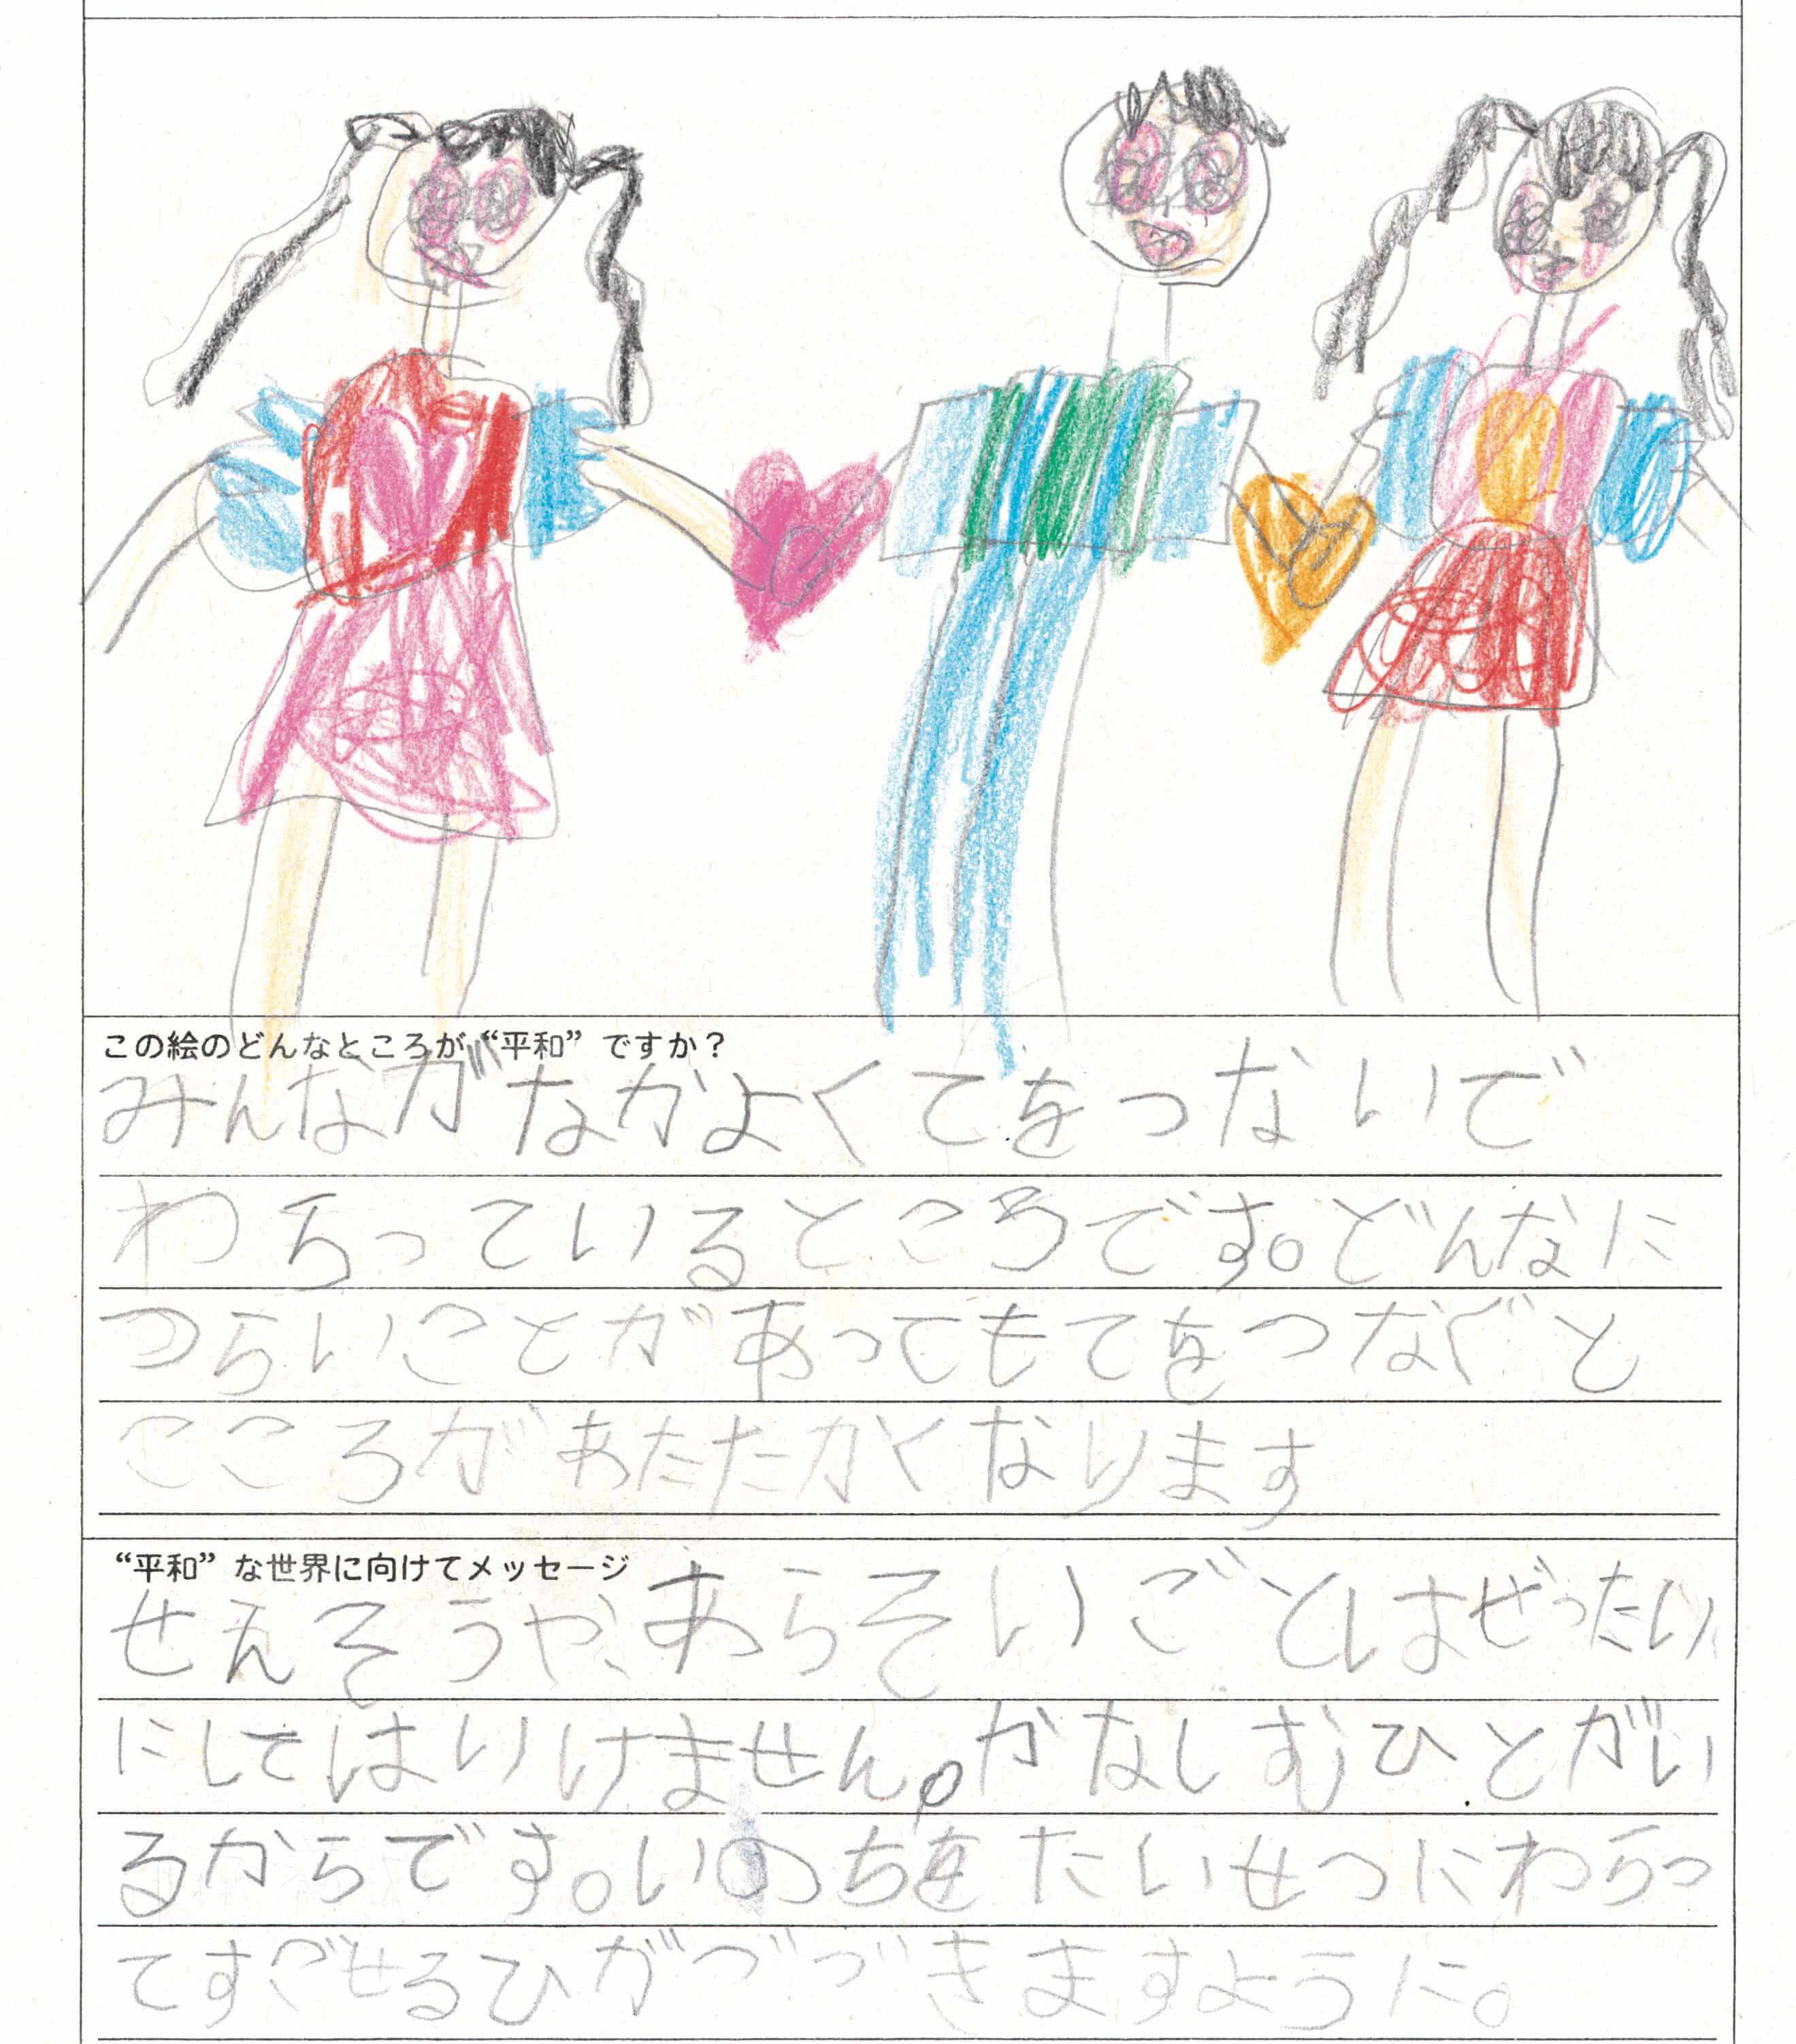 この絵のどんなところが“平和”ですか？
みんながなかよくてをつないで
わらっているところです。どんなに
つらいことがあってもてをつなぐと
こころがあたたかくなります
“平和”な世界に向けてメッセージ
せんそうや、あらそいごとはぜったい
にしてはいけません。かなしむひとがい
るからです。いのちをたいせつにわらっ
てすごせるひがづづきますように。